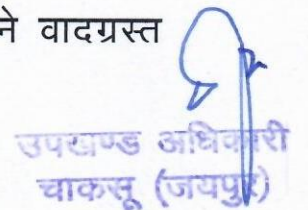 ने वादग्रस्त
उपखण्ड अधिकारी
चाकसू (जयपुर)